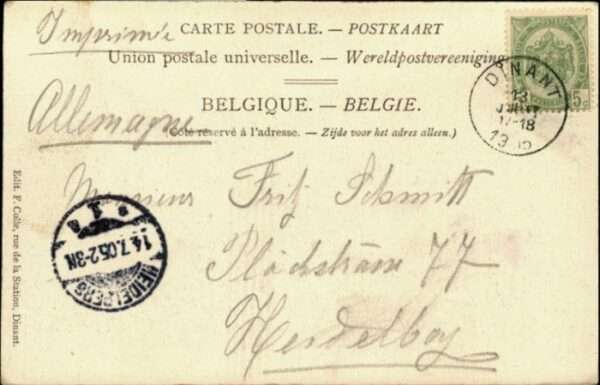 Imprimée
CARTE POSTALE. — POSTKAART
Union postale universelle. — Wereldpostvereeniging
BELGIQUE. — BELGIE.
Allemagne
(Côté réservé à l'adresse. — Zijde voor het adres alleen.)
5
DINANT
13
JUIL
17-18
Monsieur Fritz Schmitt
Plöckstrasse 77
Heidelberg
* 1 a
14.7.05.2-3N
HEIDELBERG
Edit. F. Colle, rue de la Station, Dinant.